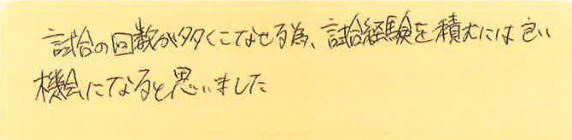 試合の回数が多くこなせる為、試合経験を積むには良い
機会になると思いました